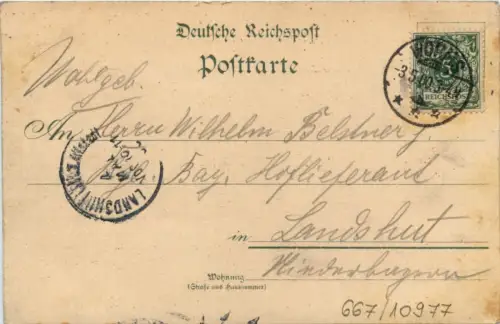 Deutsche Reichspost
Postkarte
Wohlgeb.
An Herrn Wilhelm Belstner
Kgl. Bay. Hoflieferant
in Landshut
Niederbayern
Wohnung
(Straße und Hausnummer)
667/10977
WORMS
REICHSPOST
LANDSHUT